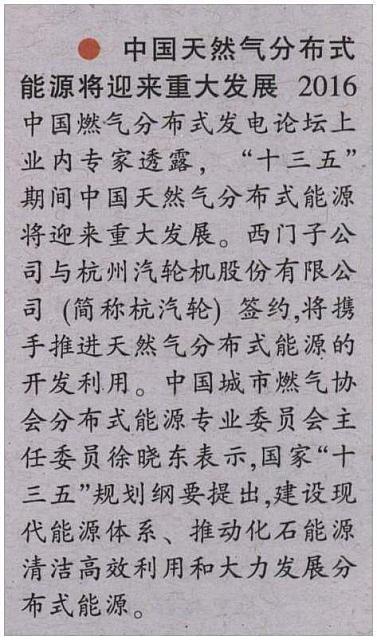 ● 中国天然气分布式
能源将迎来重大发展 2016
中国燃气分布式发电论坛上
业内专家透露，“十三五”
期间中国天然气分布式能源
将迎来重大发展。西门子公
司与杭州汽轮机股份有限公
司（简称杭汽轮）签约,将携
手推进天然气分布式能源的
开发利用。中国城市燃气协
会分布式能源专业委员会主
任委员徐晓东表示,国家“十
三五”规划纲要提出,建设现
代能源体系、推动化石能源
清洁高效利用和大力发展分
布式能源。